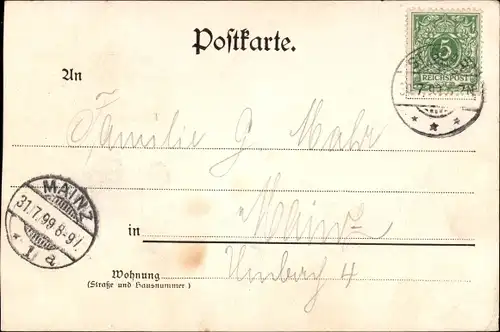 Postkarte.
5
REICHSPOST
An
Familie G. Mohr
MAINZ
31.7.99 8-9V.
1 a
in Mainz
Umbach 4
Wohnung
(Straße und Hausnummer)